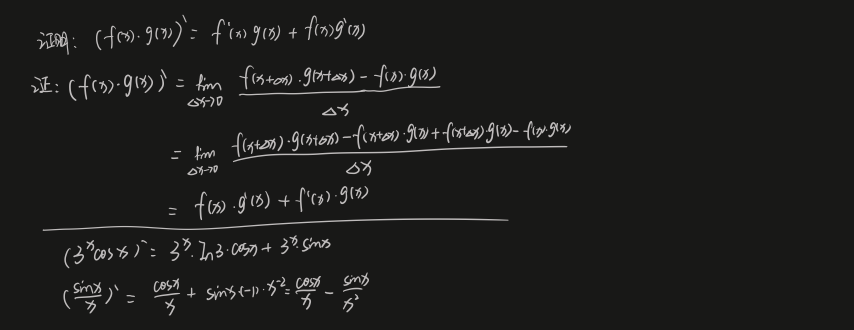 证明: (f(x)·g(x))' = f'(x) g(x) + f(x) g'(x)
证: (f(x)·g(x))' = lim_{Δx→0} \frac{f(x+Δx)·g(x+Δx) - f(x)·g(x)}{Δx}
= lim_{Δx→0} \frac{f(x+Δx)·g(x+Δx) - f(x+Δx)·g(x) + f(x+Δx)·g(x) - f(x)·g(x)}{Δx}
= f(x)·g'(x) + f'(x)·g(x)
(3^x cosx)' = 3^x·ln3·cosx + 3^x·sinx
(\frac{sinx}{x})' = \frac{cosx}{x} + sinx·(-1)·x^{-2} = \frac{cosx}{x} - \frac{sinx}{x^2}